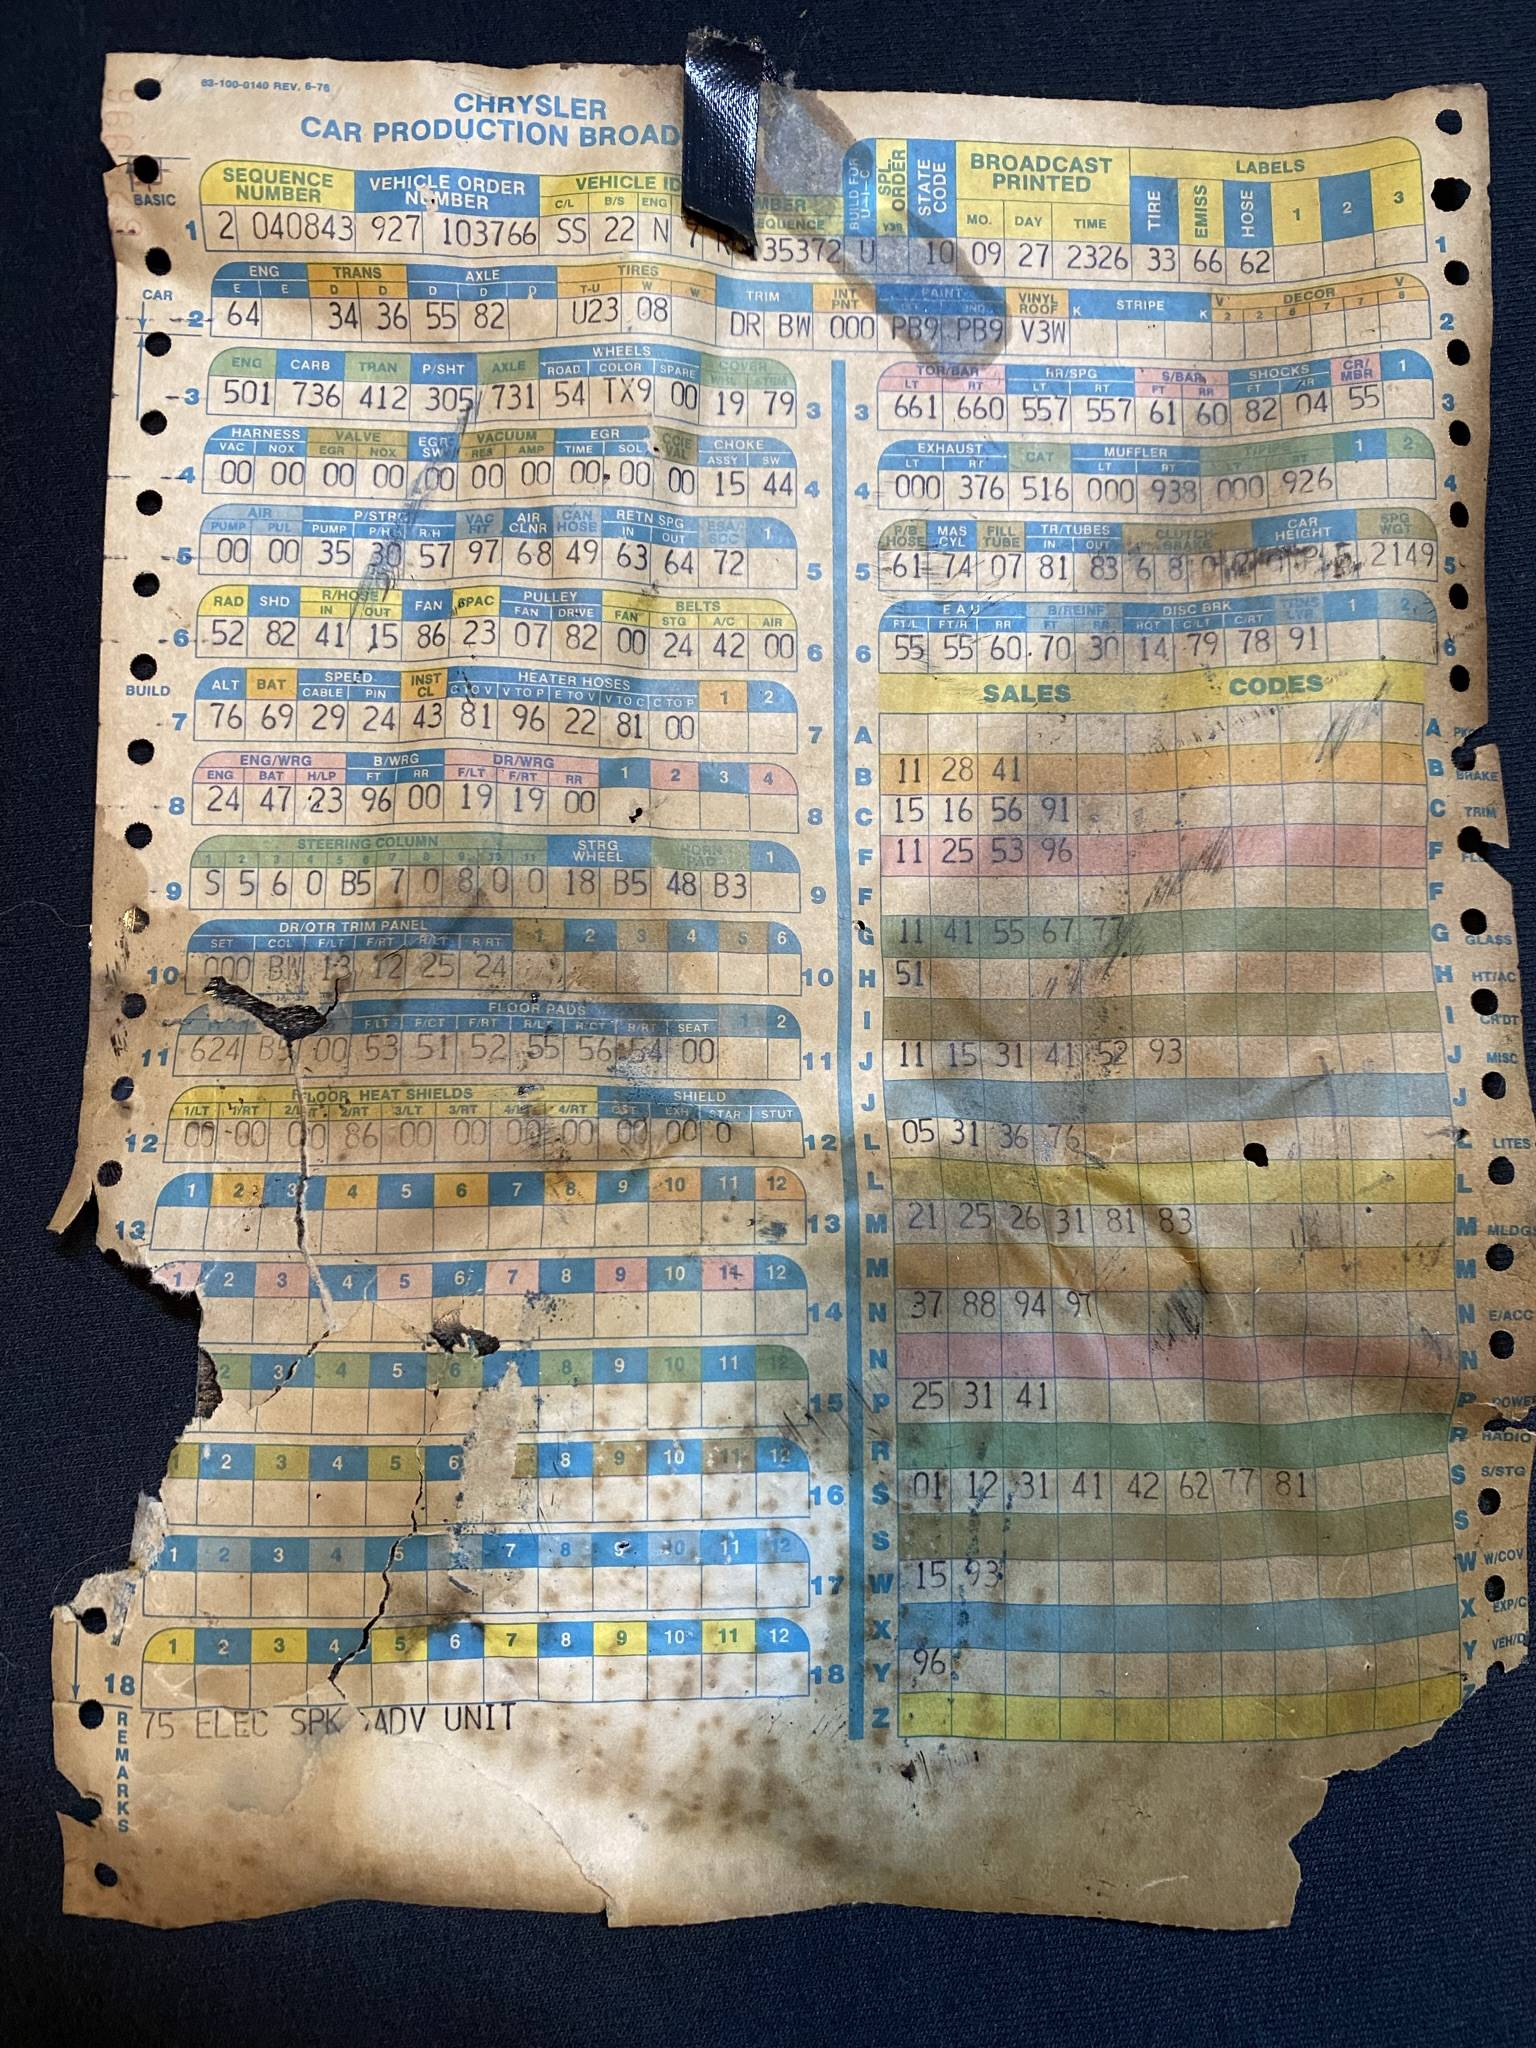 83-100-0140 REV. 6-76
CHRYSLER
CAR PRODUCTION BROAD
BASIC
SEQUENCE NUMBER VEHICLE ORDER NUMBER VEHICLE ID C/L B/S ENG SEQUENCE BUILD FOR SPL ORDER STATE CODE BROADCAST PRINTED MO. DAY TIME LABELS TIRE EMISS HOSE 1 2 3
1 2 040843 927 103766 SS 22 N 7 35372 U 10 09 27 2326 33 66 62 1
CAR
ENG E E TRANS D D AXLE D D D TIRES T-U W W TRIM INT PNT PAINT VINYL ROOF K STRIPE K DECOR
2 64 34 36 55 82 U23 08 DR BW 000 PB9 PB9 V3W 2
ENG CARB TRAN P/SHT AXLE WHEELS ROAD COLOR SPARE COVER
3 501 736 412 305 731 54 TX9 00 19 79 3
TOR/BAR LT RT RR/SPG LT RT S/BAR FT RR SHOCKS CR/MBR 1
3 661 660 557 557 61 60 82 04 55 3
HARNESS VAC NOX VALVE EGR NOX EGR SW VACUUM RES AMP EGR TIME SOL CHOKE ASSY SW
4 00 00 00 00 00 00 00 00 00 00 15 44 4
EXHAUST LT RT CAT MUFFLER LT RT 1 2
4 000 376 516 000 938 000 926 4
AIR PUMP PUL P/STRG PUMP P/H R/H AIR CLNR CAN HOSE RETN SPG IN OUT 1
5 00 00 35 30 57 97 68 49 63 64 72 5
P/B HOSE MAS CYL FILL TUBE TR/TUBES IN OUT CAR HEIGHT SPG WGT
5 61 74 07 81 83 6 8 2149 5
RAD SHD R/HOSE IN OUT FAN BPAC PULLEY FAN DRIVE BELTS FAN STG A/C AIR
6 52 82 41 15 86 23 07 82 00 24 42 00 6
EAU FT/L FT/R RR B/REINF FT RR DISC BRK ROT C/LT C/RT 1 2
6 55 55 60 70 30 14 79 78 91 6
BUILD
ALT BAT SPEED CABLE PIN INST CL HEATER HOSES C TO V V TO P E TO V V TO C C TO P 1 2
7 76 69 29 24 43 81 96 22 81 00 7
ENG/WRG ENG BAT H/LP B/WRG FT RR DR/WRG F/LT F/RT RR 1 2 3 4
8 24 47 23 96 00 19 19 00 8
STEERING COLUMN 1 2 3 4 5 6 7 8 9 10 11 STRG WHEEL HORN PAD 1
9 S 5 6 0 B5 7 0 8 0 0 18 B5 48 B3 9
DR/QTR TRIM PANEL SET COL F/LT F/RT R/LT R/RT 1 2 3 4 5 6
10 000 BW 13 12 25 24 10
FLOOR PADS F/LT F/CT F/RT R/LT R/CT R/RT SEAT 1 2
11 624 B5 00 53 51 52 55 56 54 00 11
FLOOR HEAT SHIELDS 1/LT 1/RT 2/LT 2/RT 3/LT 3/RT 4/LT 4/RT SHIELD EXH STAR STUT
12 00 00 00 86 00 00 00 00 00 00 0 12
1 2 3 4 5 6 7 8 9 10 11 12
13 13
1 2 3 4 5 6 7 8 9 10 11 12
14
2 3 4 5 6 8 9 10 11 12
15
1 2 3 4 5 6 8 9 10 11 12
16
1 2 3 4 5 7 8 9 10 11 12
17
1 2 3 4 5 6 7 8 9 10 11 12
18 18
REMARKS
75 ELEC SPK ADV UNIT
SALES CODES
A A
B 11 28 41 B BRAKE
C 15 16 56 91 C TRIM
F 11 25 53 96 F
F F
G 11 41 55 67 77 G GLASS
H 51 H HT/AC
I I CRDT
J 11 15 31 41 52 93 J MISC
J J
L 05 31 36 76 L LITES
L L
M 21 25 26 31 81 83 M MLDGS
M M
N 37 88 94 97 N E/ACC
N N
P 25 31 41 P POWE
R R RADIO
S 01 12 31 41 42 62 77 81 S S/STG
S S
W 15 93 W W/COV
X X EXP/C
Y 96 Y VEH/D
Z